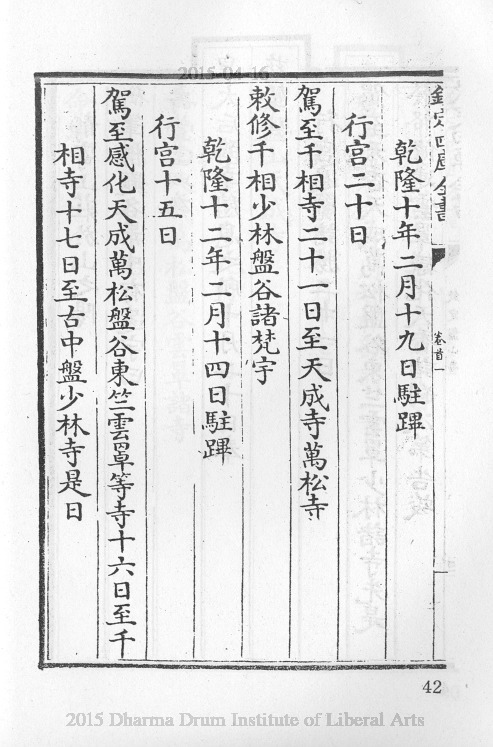 2015-04-16
欽定四庫全書
卷首一
乾隆十年二月十九日駐蹕
行宫二十日
駕至千相寺二十一日至天成寺萬松寺
敕修千相少林盤谷諸梵宇
乾隆十二年二月十四日駐蹕
行宫十五日
駕至感化天成萬松盤谷東竺雲罩等寺十六日至千
相寺十七日至古中盤少林寺是日
42
2015 Dharma Drum Institute of Liberal Arts